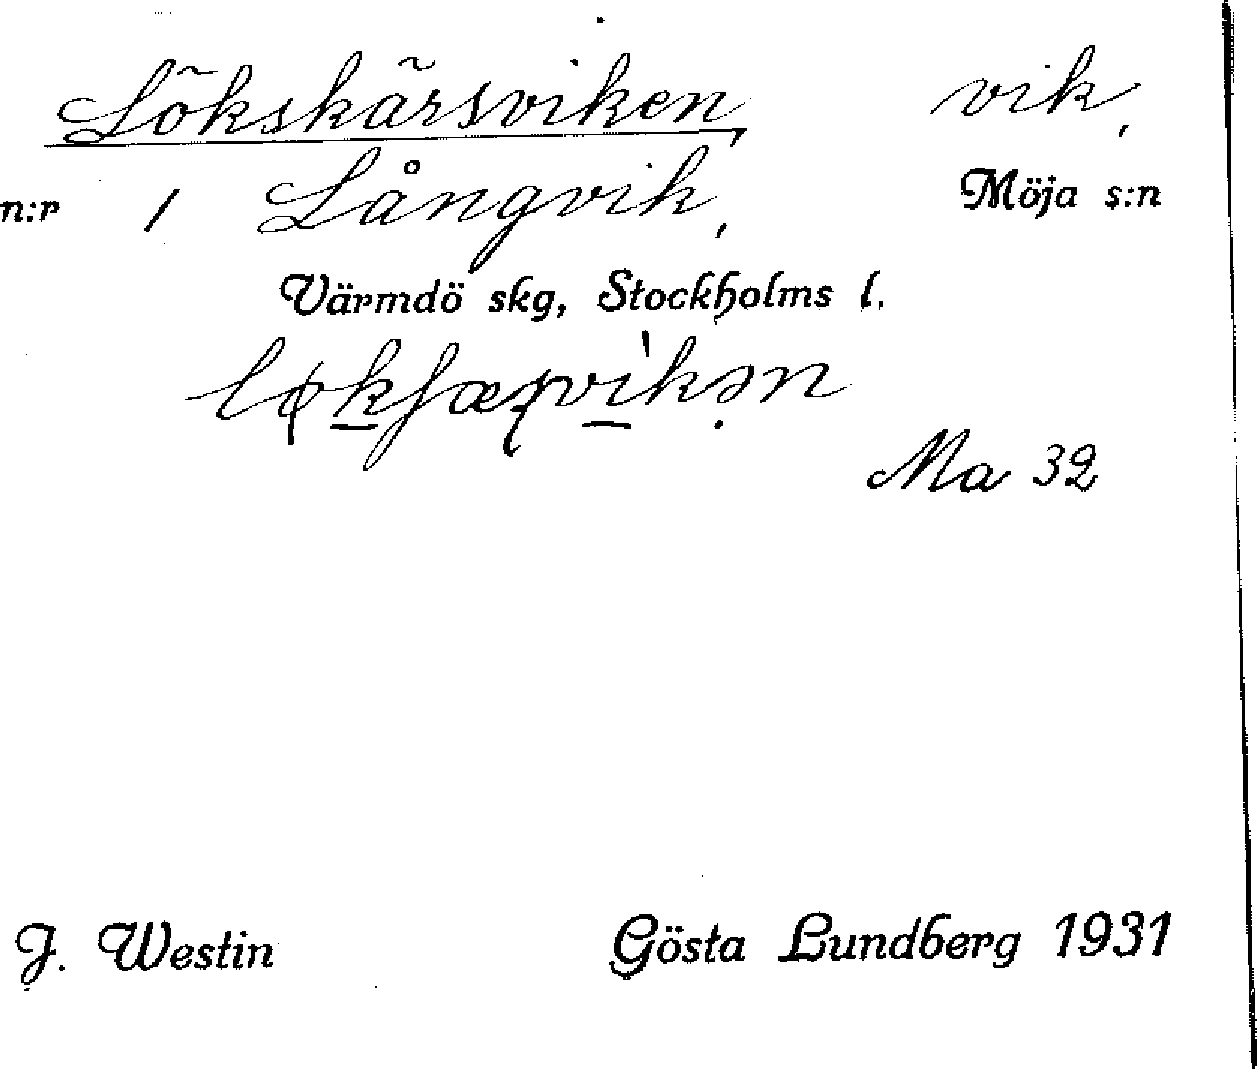 Lökskärsviken, vik,
n:r 1 Långvik, Möja s:n
Värmdö skg, Stockholms l.
Ma 32
J. Westin Gösta Lundberg 1931